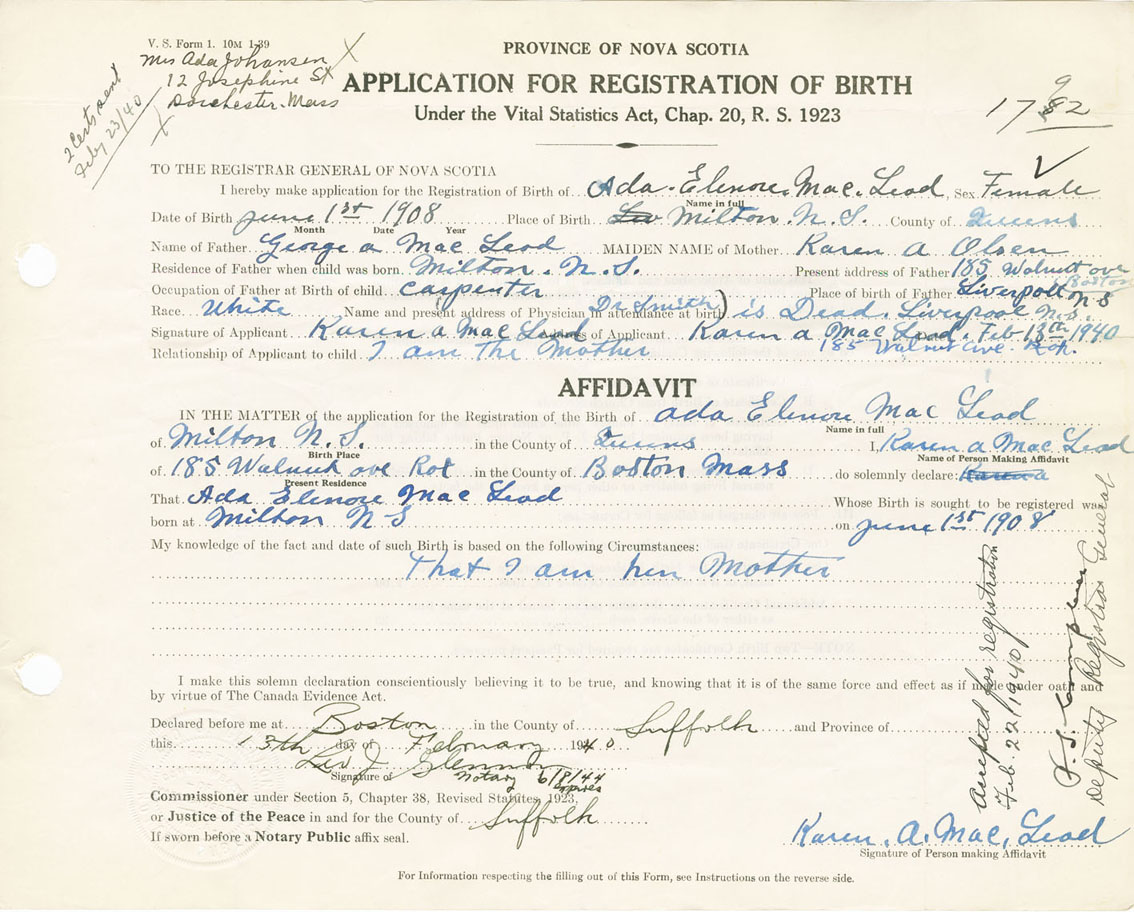 V. S. Form 1. 10M 1-39
Mrs Ada Johansen
12 Josephine St
Dorchester. Mass
2 Certs sent
Feby 23/40
PROVINCE OF NOVA SCOTIA
APPLICATION FOR REGISTRATION OF BIRTH
Under the Vital Statistics Act, Chap. 20, R. S. 1923
TO THE REGISTRAR GENERAL OF NOVA SCOTIA
I hereby make application for the Registration of Birth of Ada. Elenore. Mac. Leod, Sex Female
Name in full
Date of Birth June 1st 1908 Place of Birth Milton. N. S. County of Queens
Month Date Year
Name of Father George a Mac Leod MAIDEN NAME of Mother Karen A Olsen
Residence of Father when child was born. Milton. N. S. Present address of Father 185 Walnut ave Boston
Occupation of Father at Birth of child. Carpenter Place of birth of Father Liverpool N S
Race. White Name and present address of Physician in attendance at birth Dr Smith) is Dead. Liverpool N. S.
Signature of Applicant Karen a Mac Leod of Applicant Karen a Mac Leod. Feb 13th 1940
Relationship of Applicant to child. I am The Mother 185 Walnut ave.
AFFIDAVIT
IN THE MATTER of the application for the Registration of the Birth of Ada Elenore Mac Leod
Name in full
of Milton N. S. in the County of Queens I, Karen a Mac Leod
Birth Place Name of Person Making Affidavit
of 185 Walnut ave Rox in the County of Boston Mass do solemnly declare: Karen a
Present Residence
That Ada Elenore Mac Leod Whose Birth is sought to be registered was
born at Milton N S on June 1st 1908
My knowledge of the fact and date of such Birth is based on the following Circumstances:
That I am her Mother
I make this solemn declaration conscientiously believing it to be true, and knowing that it is of the same force and effect as if made under oath and
by virtue of The Canada Evidence Act.
Declared before me at Boston in the County of Suffolk and Province of
this 13th day of February 1940
Leo J Glennon
Signature of Notary 6/8/44
expires
Commissioner under Section 5, Chapter 38, Revised Statutes, 1923,
or Justice of the Peace in and for the County of Suffolk
If sworn before a Notary Public affix seal.
Karen. A. Mac. Leod
Signature of Person making Affidavit
For Information respecting the filling out of this Form, see Instructions on the reverse side.
Accepted for registration
Feb. 22/1940
Deputy Registrar General